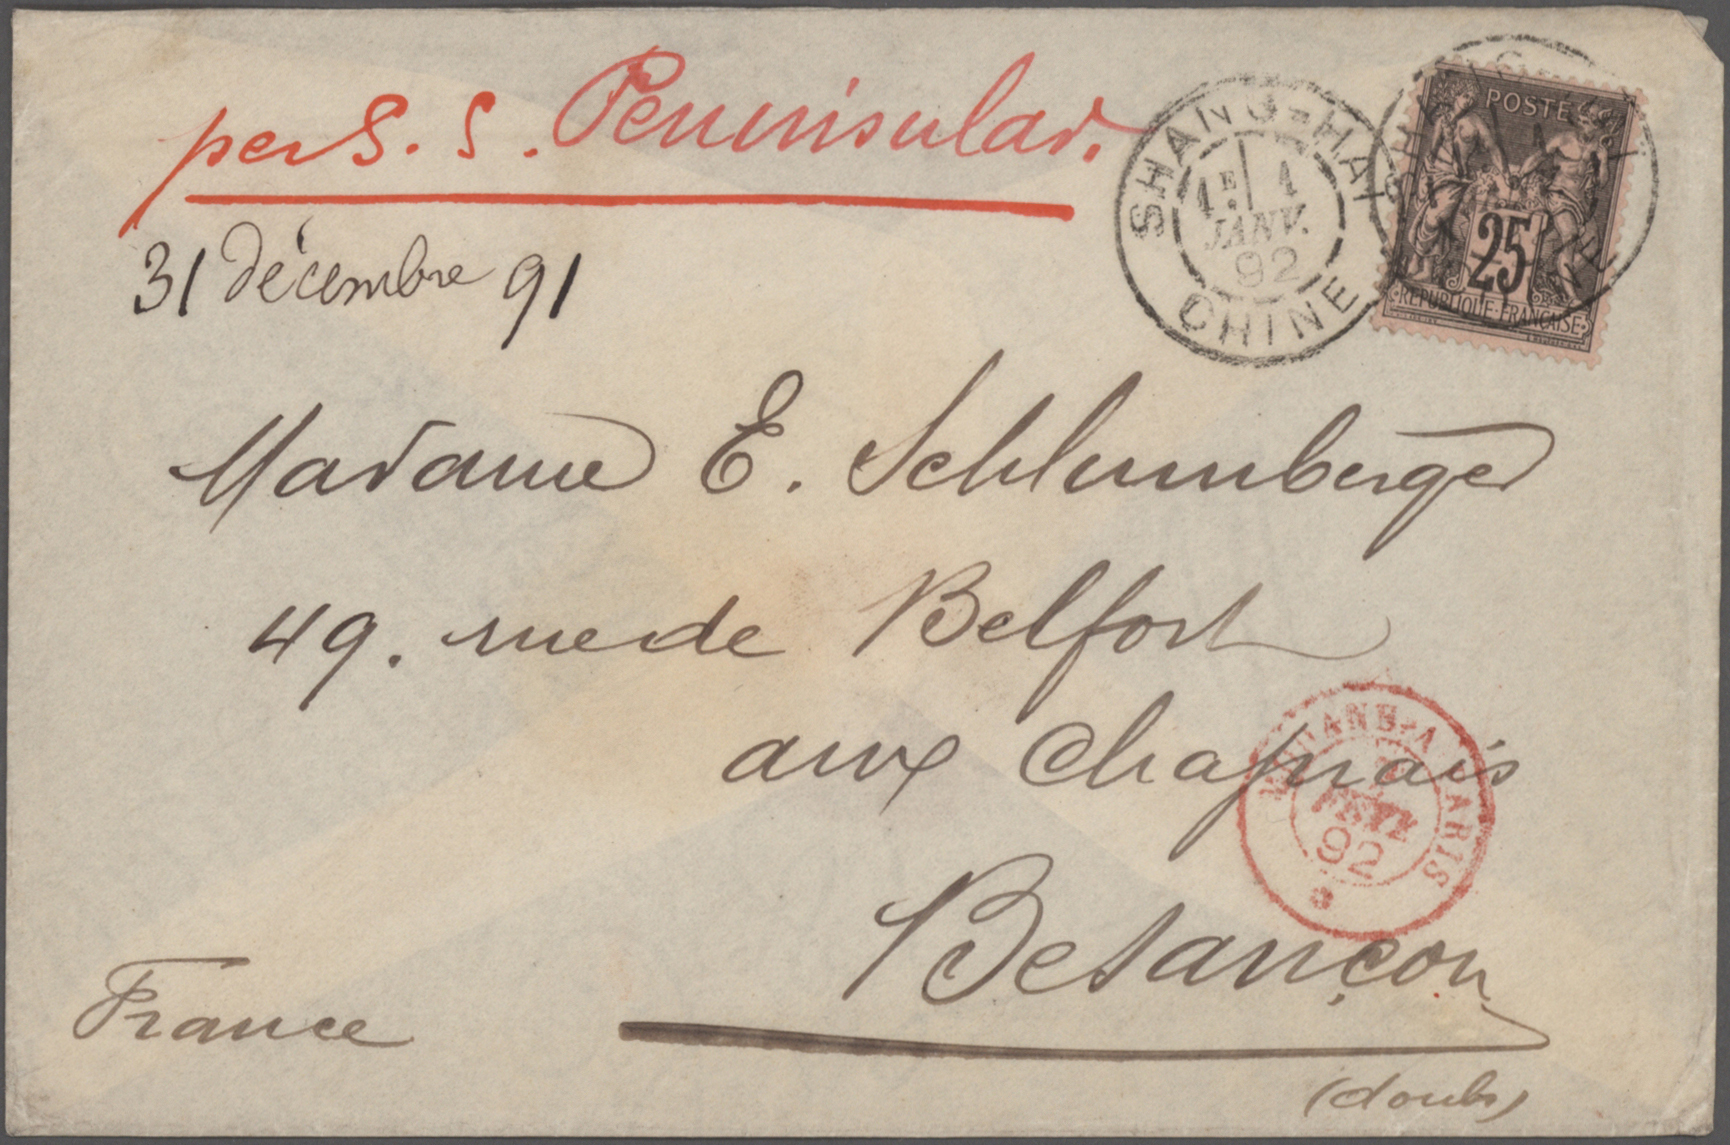 per S. S. Peninsular.
31 décembre 91
SHANG-HAI
1E 1
JANV.
92
CHINE
POSTE
25
REPUBLIQUE FRANCAISE
Madame E. Schlumberger
49. rue de Belfort
aux Chaprais
Besançon
(doubs)
France
A PARIS
92
3